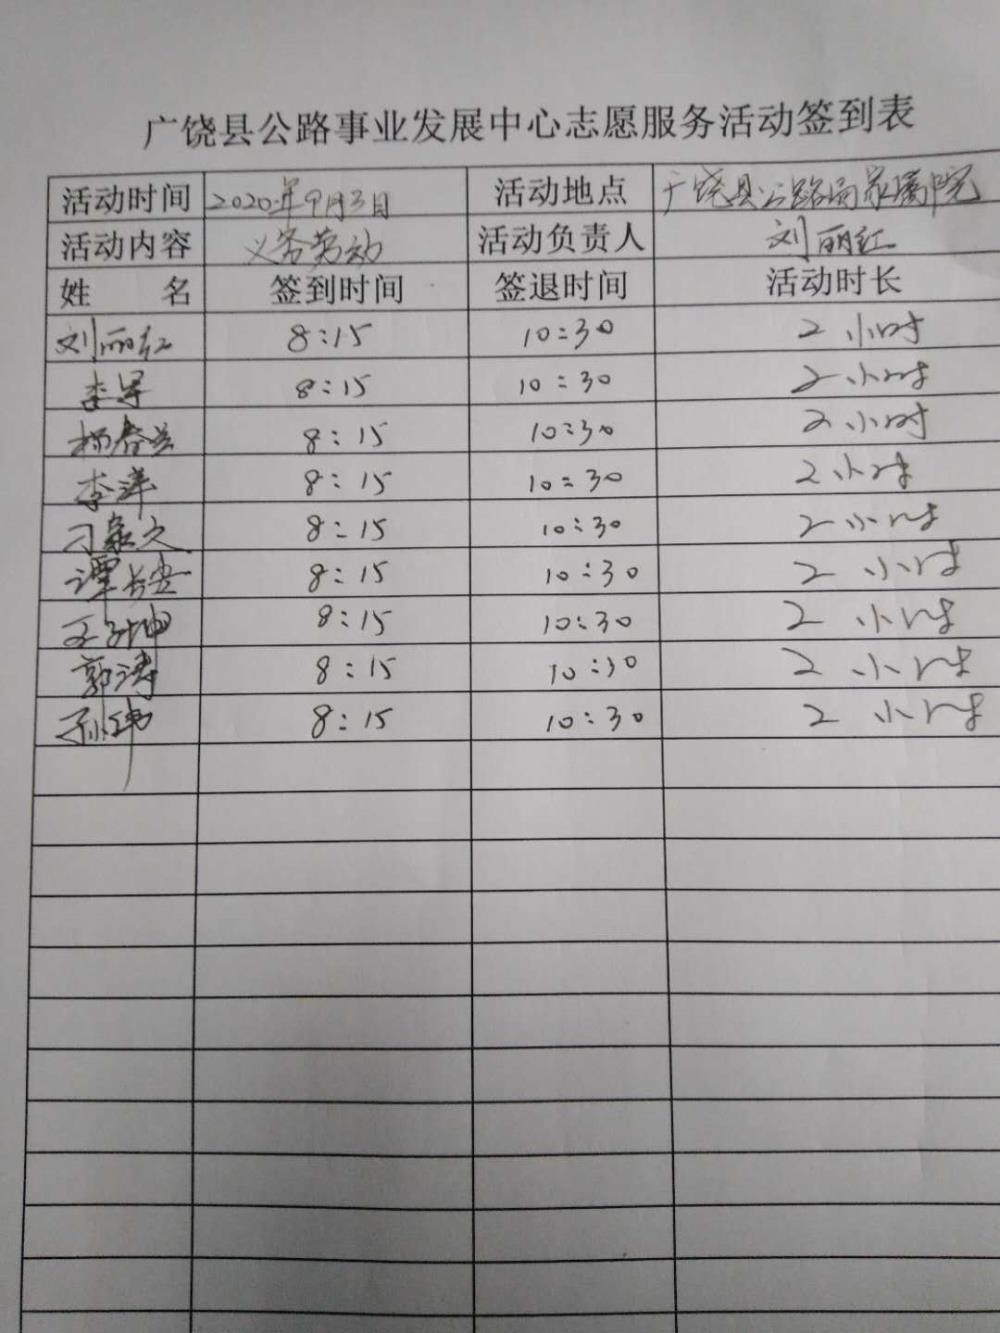 广饶县公路事业发展中心志愿服务活动签到表
活动时间 2020年9月3日 活动地点 广饶县公路局家属院
活动内容 义务劳动 活动负责人 刘丽红
姓 名 签到时间 签退时间 活动时长
刘丽红 8:15 10:30 2小时
李军 8:15 10:30 2小时
杨春兰 8:15 10:30 2小时
李洋 8:15 10:30 2小时
8:15 10:30 2小时
谭长安 8:15 10:30 2小时
王坤 8:15 10:30 2小时
郭涛 8:15 10:30 2小时
孙玮 8:15 10:30 2小时